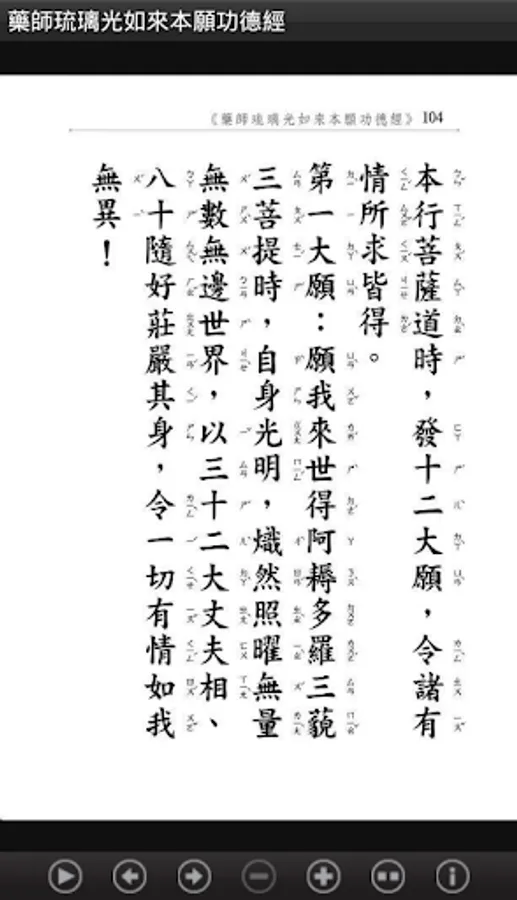 藥師琉璃光如來本願功德經
《藥師琉璃光如來本願功德經》 104
本行菩薩道時，發十二大願，令諸有
情所求皆得。
第一大願：願我來世得阿耨多羅三藐
三菩提時，自身光明，熾然照曜無量
無數無邊世界，以三十二大丈夫相、
八十隨好莊嚴其身，令一切有情如我
無異！